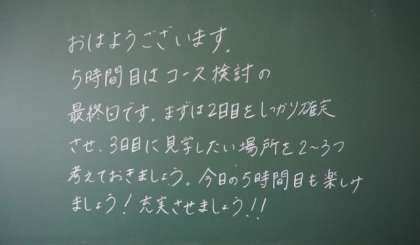 おはようございます。
5時間目はコース検討の
最終日です。まずは2日目をしっかり確定
させ、3日目に見学したい場所を2~3つ
考えておきましょう。今日の5時間目も楽しみ
ましょう!充実させましょう!!